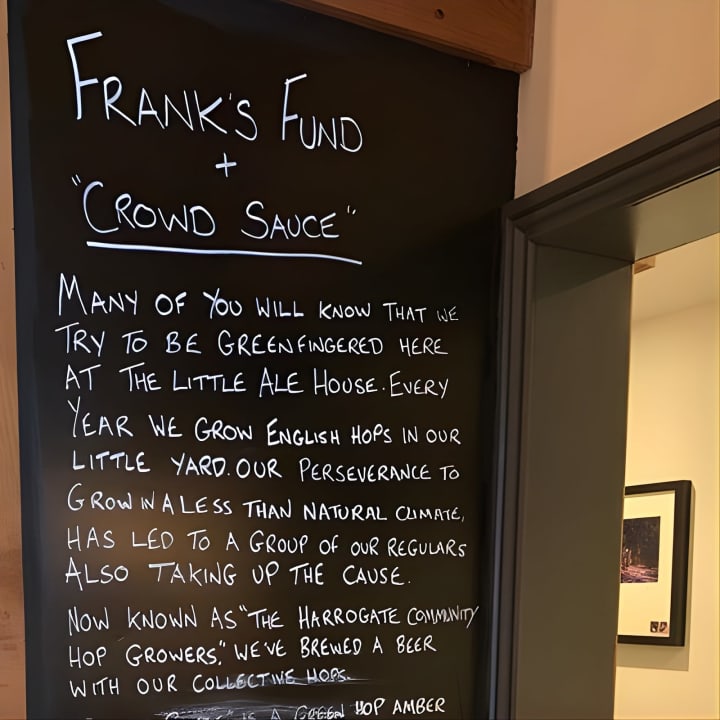 FRANK'S FUND
+
"CROWD SAUCE"
MANY OF YOU WILL KNOW THAT WE
TRY TO BE GREENFINGERED HERE
AT THE LITTLE ALE HOUSE. EVERY
YEAR WE GROW ENGLISH HOPS IN OUR
LITTLE YARD. OUR PERSEVERANCE TO
GROW IN A LESS THAN NATURAL CLIMATE,
HAS LED TO A GROUP OF OUR REGULARS
ALSO TAKING UP THE CAUSE.
NOW KNOWN AS "THE HARROGATE COMMUNITY
HOP GROWERS," WE'VE BREWED A BEER
WITH OUR COLLECTIVE HOPS.
IS A GREEN HOP AMBER